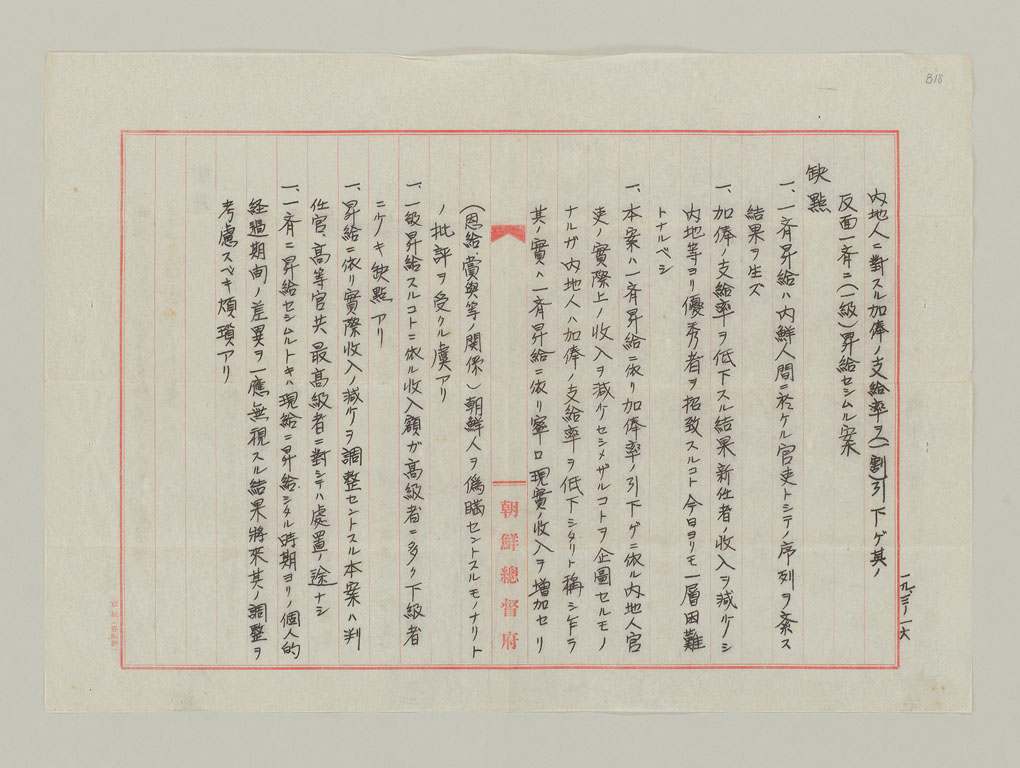 B18
一九、三、一六
内地人ニ對スル加俸ノ支給率ヲ(一割)引下ゲ其ノ
反面一斉ニ(一級)昇給セシムル案
缺點
一、一斉昇給ハ内鮮人間ニ於ケル官吏トシテノ序列ヲ紊ス
結果ヲ生ズ
一、加俸ノ支給率ヲ低下スル結果新任者ノ收入ヲ減ケノシ
内地等ヨリ優秀者ヲ招致スルコト今日ヨリモ一層困難
トナルベシ
一、本案ハ一斉昇給ニ依リ加俸率ノ引下ゲニ依ル内地人官
吏ノ實際上ノ收入ヲ減ケセシメザルコトヲ企圖セルモノ
ナルガ内地人ハ加俸ノ支給率ヲ低下シタリト稱シ乍ラ
其ノ實ハ一斉昇給ニ依リ寧ロ現實ノ收入ヲ増加セリ
朝鮮總督府
(恩給、賞與等ノ関係)朝鮮人ヲ僞瞞セントスルモノナリト
ノ批評ヲ受クル虞アリ
一、一級昇給スルコトニ依ル收入額ガ高級者ニ多ク下級者
ニケキ缺點アリ
一、昇給ニ依リ實際收入ノ減ケヲ調整セントスル本案ハ判
任官、高等官共最高級者ニ對シテハ處置ノ途ナシ
一、一斉ニ昇給セシムルトキハ現給ニ昇給シタル時期ヨリノ個人的
経過期間ノ差異ヲ一應無視スル結果將來其ノ調整ヲ
考慮スベキ煩瑣アリ